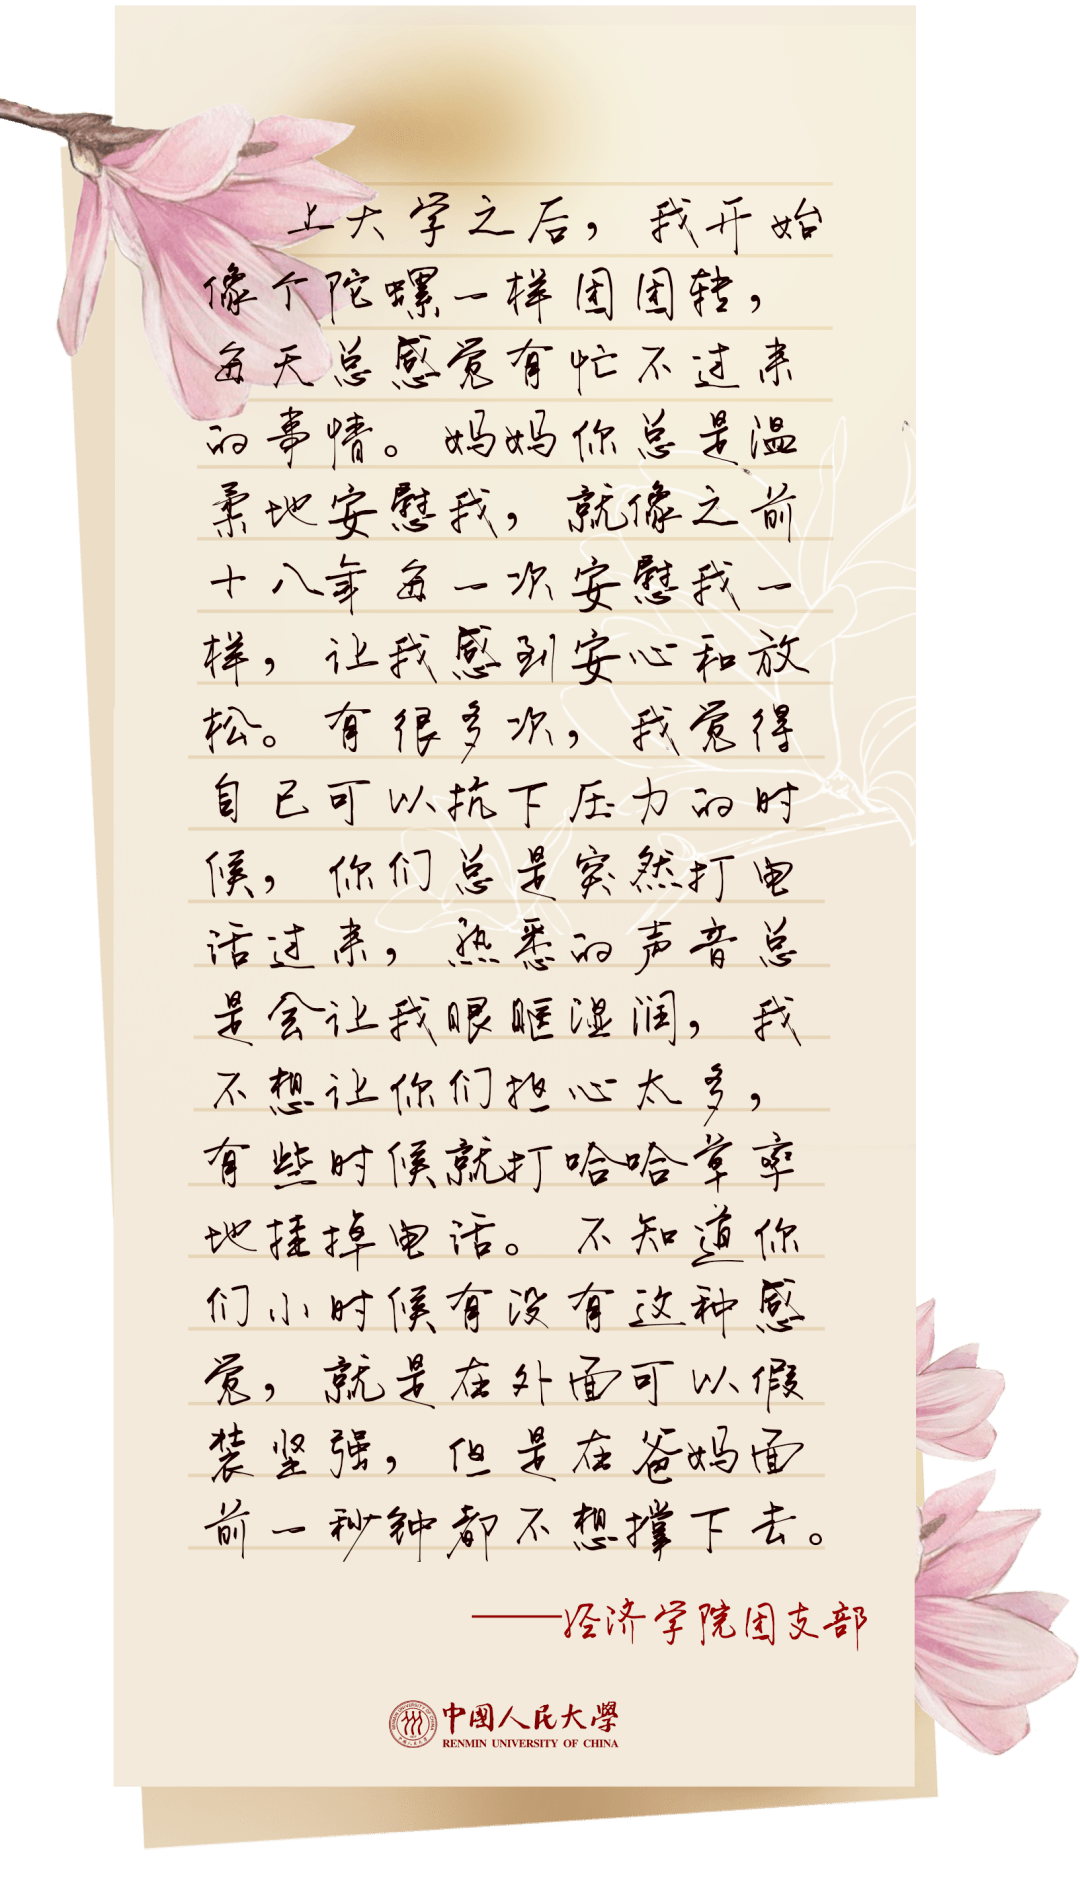 上大学之后，我开始
像个陀螺一样团团转，
每天总感觉有忙不过来
的事情。妈妈你总是温
柔地安慰我，就像之前
十八年每一次安慰我一
样，让我感到安心和放
松。有很多次，我觉得
自己可以抗下压力的时
候，你们总是突然打电
话过来，熟悉的声音总
是会让我眼眶湿润，我
不想让你们担心太多，
有些时候就打哈哈草率
地挂掉电话。不知道你
们小时候有没有这种感
觉，就是在外面可以假
装坚强，但是在爸妈面
前一秒钟都不想撑下去。
——经济学院团支部
中國人民大學
RENMIN UNIVERSITY OF CHINA